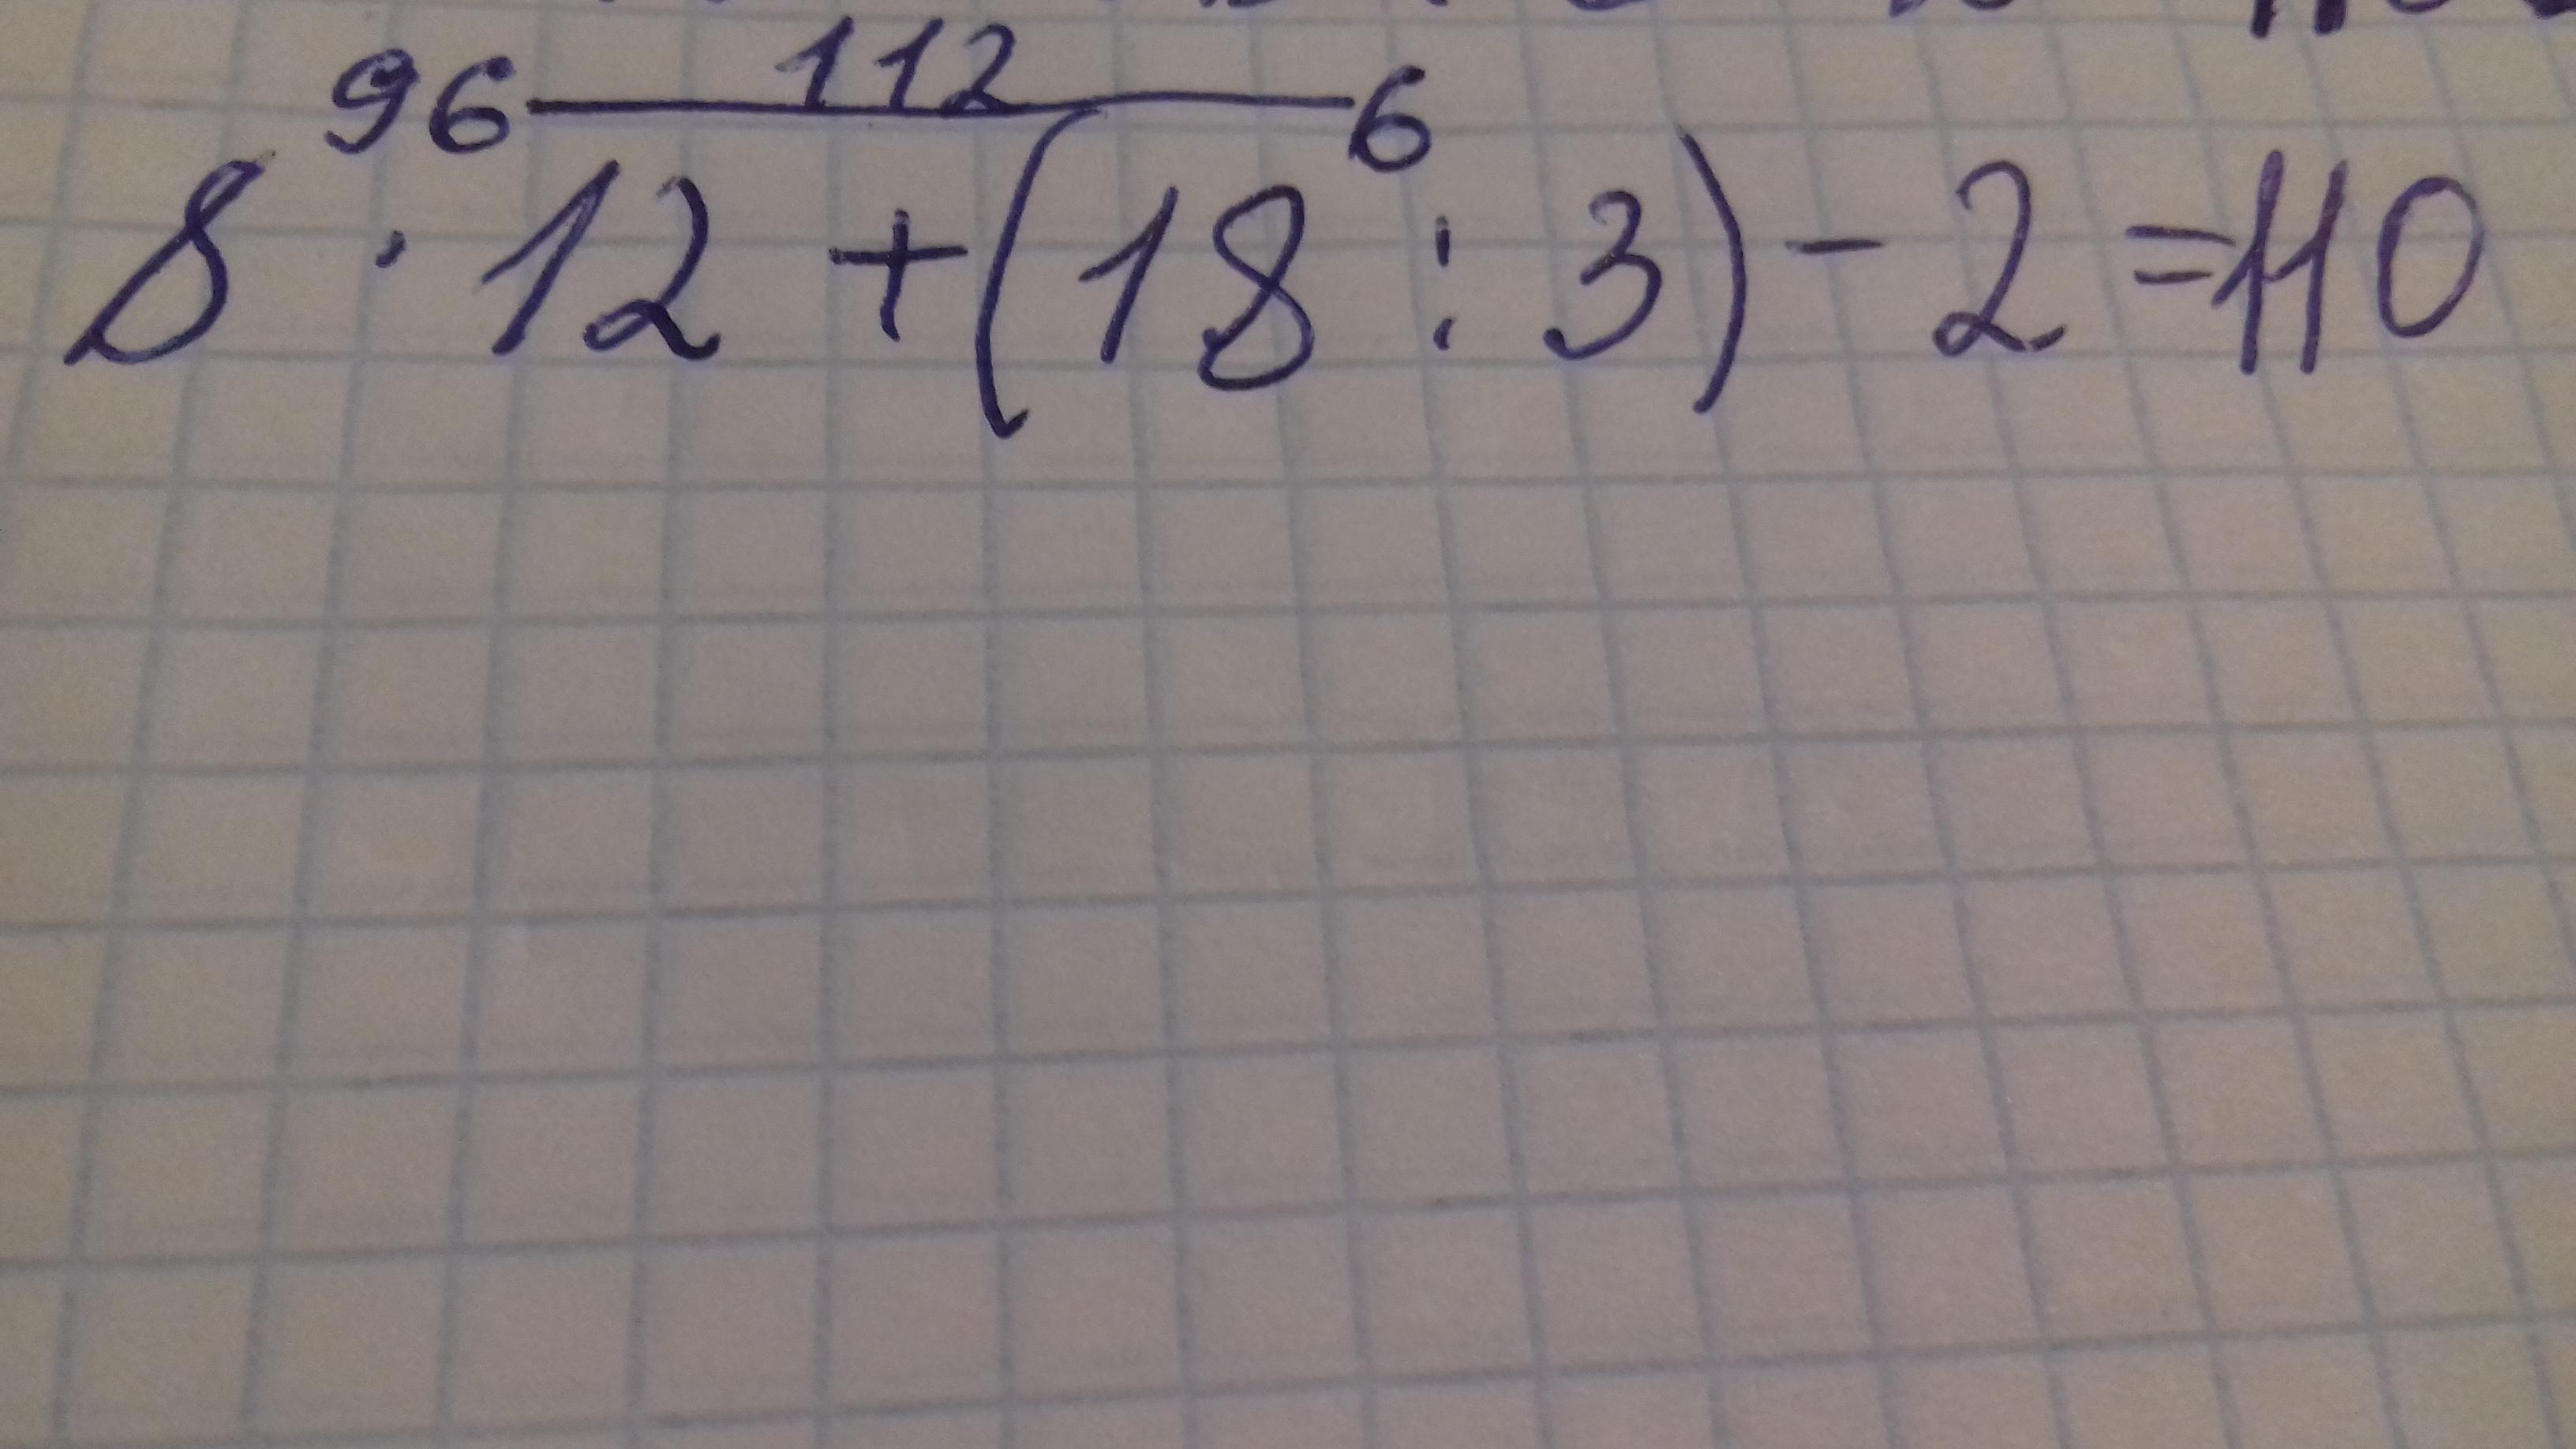 96 112 6
8 · 12 + (18 : 3) - 2 = 110